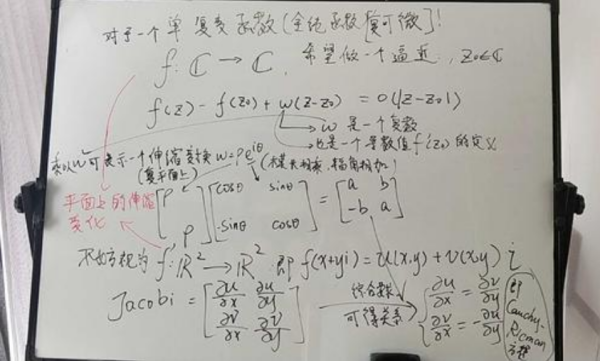 对于一个单复变函数(全纯函数[复可微])!
f: ℂ → ℂ, 希望做一个逼近, z₀∈ℂ
f(z) - f(z₀) + w(z-z₀) = o(|z-z₀|)
w 是一个复数
也是一个导数值 f'(z₀) 的定义
乘以w可表示一个伸缩变换 w=ρe^{iθ}
(复平面上) (求是长相乘, 辐角相加)
平面上的伸缩变化
[ρ ρ] [cosθ sinθ -sinθ cosθ] = [a b -b a]
不妨视为 f: ℝ² → ℝ² 即 f(x+yi) = u(x,y) + v(x,y) i
Jacobi = [∂u/∂x ∂u/∂y ∂v/∂x ∂v/∂y] 综合 可得关系 {∂u/∂x = ∂v/∂y ∂v/∂x = -∂u/∂y
即 Cauchy-Riemann 方程